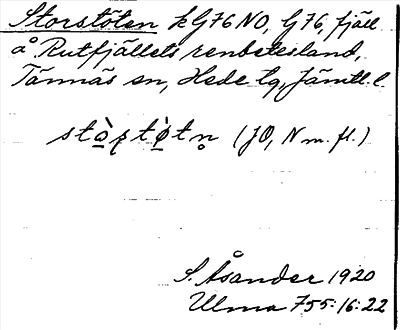 Storstöten k G76 NO, G 76, fjäll
å Rutfjällets renbetesland,
Tännäs sn, Hede tg, Jämtl. l.
stò̱ʂtö̱̀tn̥ (JO, N m. fl.)
S. Åsander 1920
Ulma 755:16:22